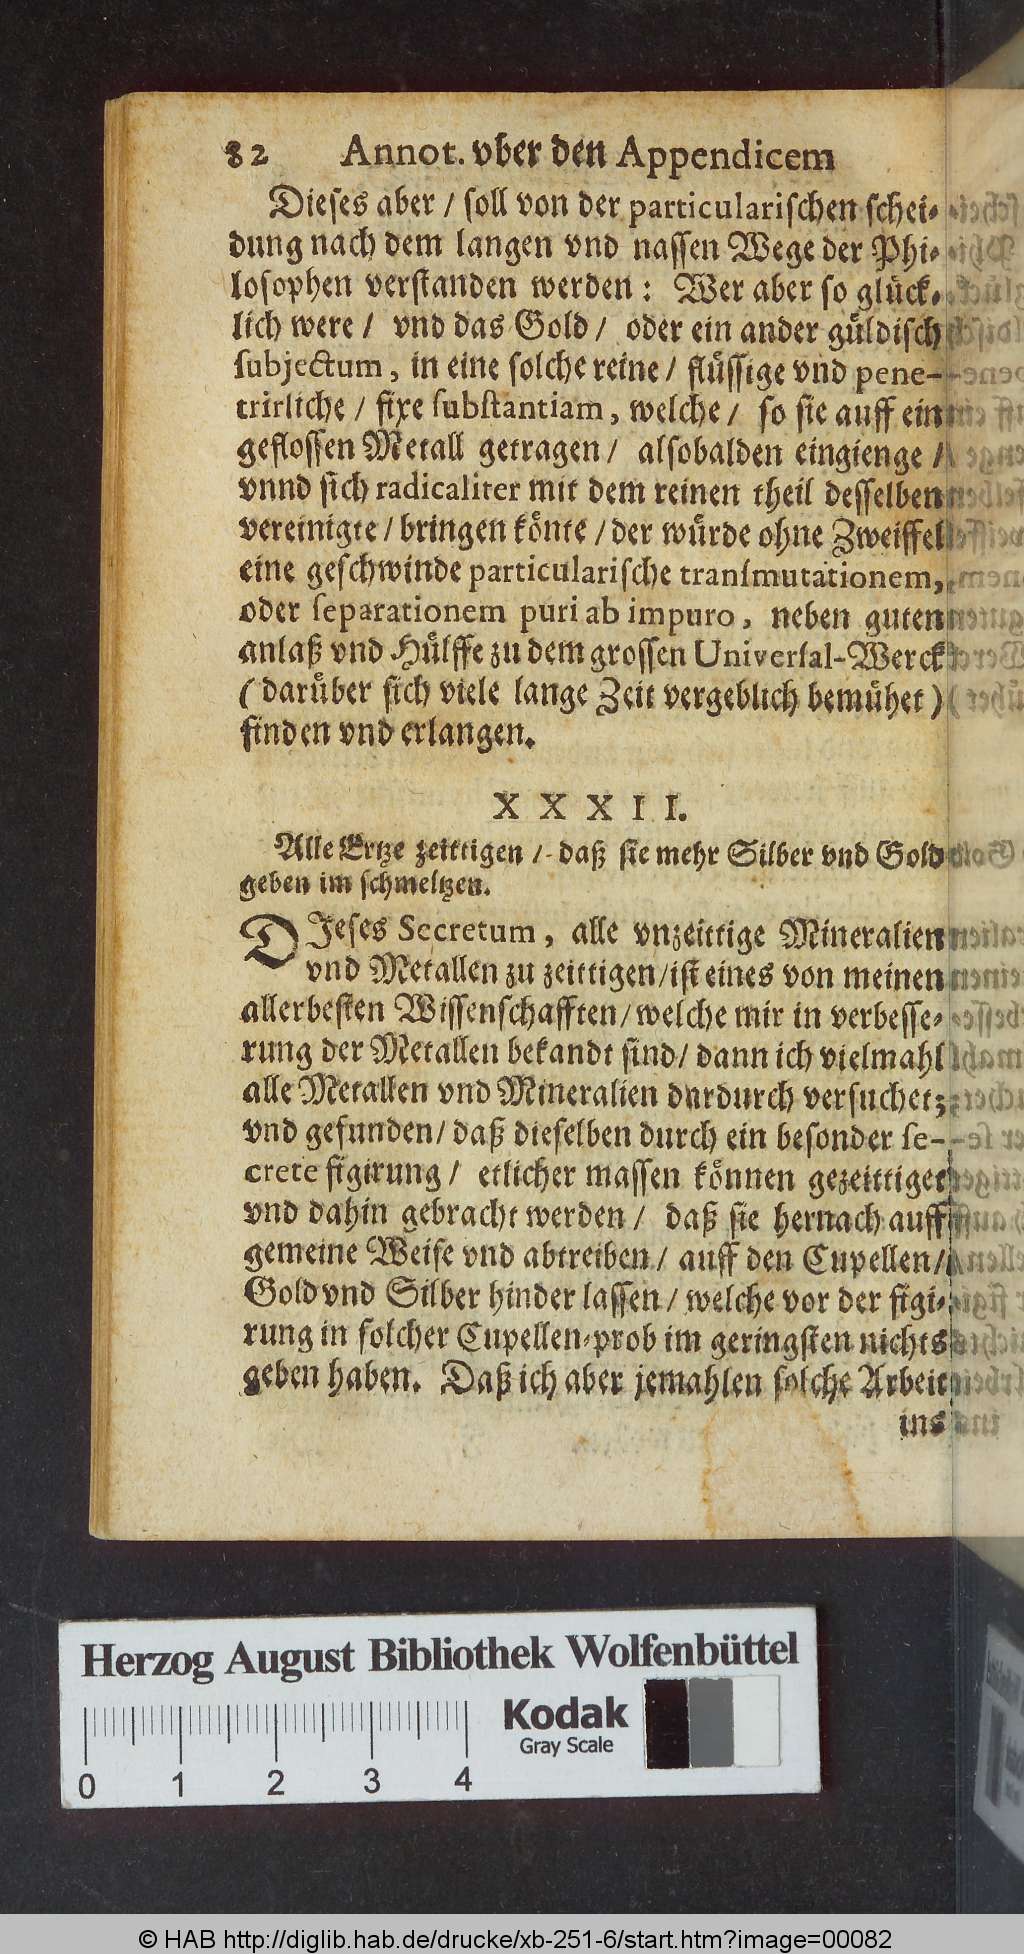 82 Annot. vber den Appendicem
Dieses aber / soll von der particularischen schei-
dung nach dem langen vnd nassen Wege der Phi-
losophen verstanden werden: Wer aber so glück-
lich were / vnd das Gold / oder ein ander güldisch
subjectum, in eine solche reine / flüssige vnd pene-
trirliche / fixe substantiam, welche / so sie auff ein
geflossen Metall getragen / alsobalden eingienge /
vnnd sich radicaliter mit dem reinen theil desselben
vereinigte / bringen könte / der würde ohne Zweiffel
eine geschwinde particularische transmutationem,
oder separationem puri ab impuro, neben guten
anlaß vnd Hülffe zu dem grossen Universal-Werck
(darüber sich viele lange Zeit vergeblich bemühet)
finden vnd erlangen.
XXXII.
Alle Ertze zeittigen / daß sie mehr Silber vnd Gold
geben im schmeltzen.
DJeses Secretum, alle vnzeittige Mineralien
vnd Metallen zu zeittigen / ist eines von meinen
allerbesten Wissenschafften / welche mir in verbesse-
rung der Metallen bekandt sind / dann ich vielmahl
alle Metallen vnd Mineralien durdurch versuchet;
vnd gefunden / daß dieselben durch ein besonder se-
crete figirung / etlicher massen können gezeittiget
vnd dahin gebracht werden / daß sie hernach auff
gemeine Weise vnd abtreiben / auff den Cupellen /
Gold vnd Silber hinder lassen / welche vor der figi-
rung in solcher Cupellen-prob im geringsten nichts
geben haben. Daß ich aber jemahlen solche Arbeit
ins
Herzog August Bibliothek Wolfenbüttel
Kodak
Gray Scale
0 1 2 3 4
© HAB http://diglib.hab.de/drucke/xb-251-6/start.htm?image=00082